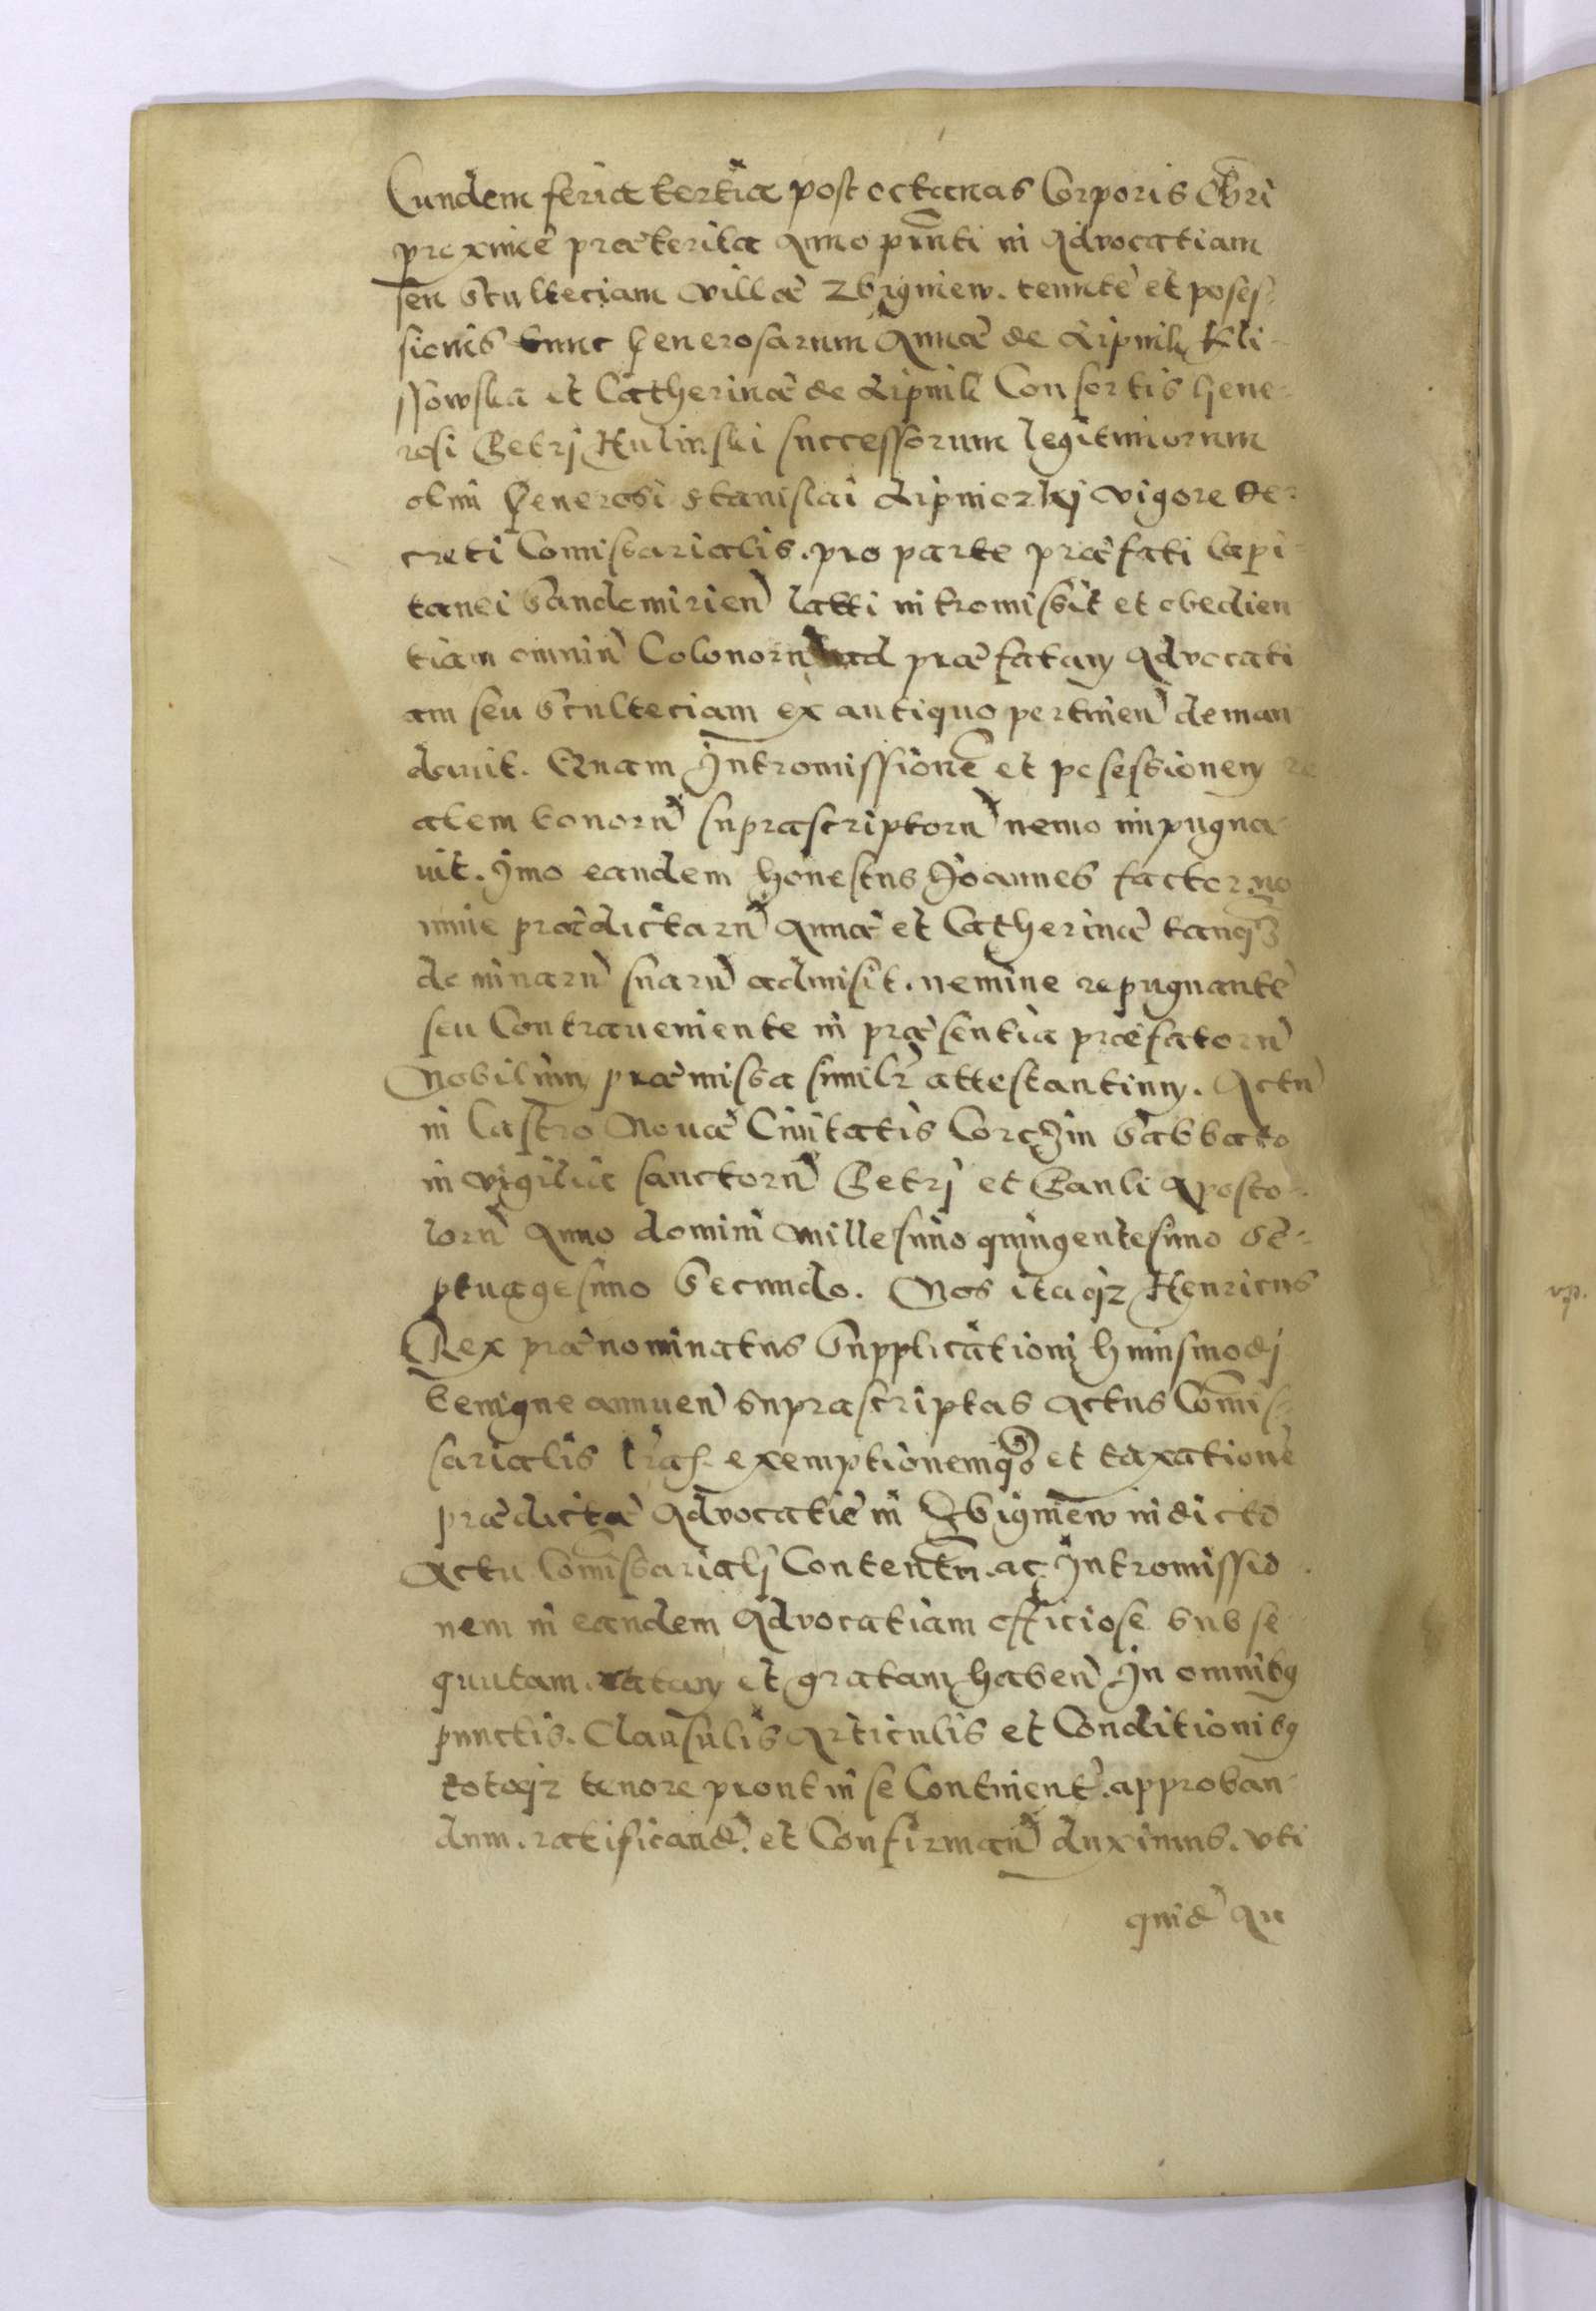 Eundem feria tertia post octauas Corporis Chri
proxime præterita Anno pnti in Advocatiam
seu Scultetiam villæ Zbigniew. tentæ et poses-
sionis tunc Generosarum Annæ de Lipnik Kli-
ssowska et Catherinæ de Lipnik Consortis Gene-
rosi Petrj Kulinski successorum legitimorum
olim Generosi Stanislai Lipniczkj vigore De-
creti Comissarialis. pro parte præfati Capi-
tanei Sandomirien latti intromissit et obedien
tiam omniu Colonoru ad præfatam Advocati
am seu Scultetiam ex antiquo pertinen deman
dauit. Quam Intromissione et posessionem re
alem bonoru suprascriptoru nemo impugna-
uit. Imo eandem honestus Joannes factor no
mine prædictaru Annæ et Catherinæ tanqz
dominaru suaru admisit. nemine repugnante
seu Contraueniente in præsentia præfatoru
Nobilium præmissa similr attestantium. Actu
in Castro Nouæ Ciuitatis Corczin Sabbato
in vigilia sanctoru Petrj et Pauli Aposto-
loru Anno domini millesimo quingentesimo Se-
ptuagesimo Secundo. Nos itaqz Henricus
Rex prænominatus Supplicationi huiusmodj
benigne annuen suprascriptas Actus Comis-
sarialis lras exemptionemqz et taxatione
prædictæ Advocatiæ in Zbigniew in dicto
Actu Comissarialj Contentu. ac Intromissio
nem in eandem Advocatiam officiose subse-
quutam. ratam et gratam haben In omnibq
punctis. Clausulis Articulis et Conditionibq
totoqz tenore prout in se Continent. approban-
dum. ratificand. et Confirmand duximus. vti
quid Au